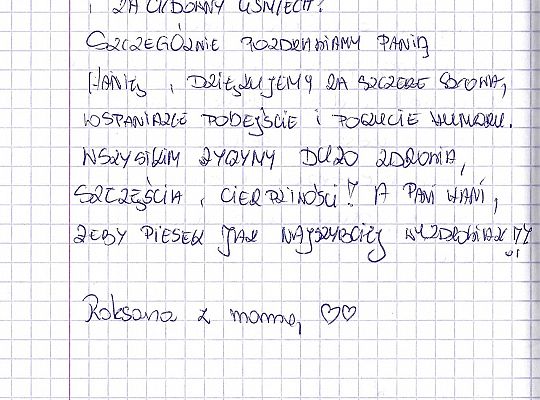 I ZA CUDOWNY UŚMIECH!
SZCZEGÓLNIE POZDRAWIAMY PANIĄ
HANIĘ, DZIĘKUJEMY ZA SZCZERE SŁOWA,
WSPANIAŁE PODEJŚCIE I POCZUCIE HUMORU.
WSZYSTKIM ŻYCZYMY DUŻO ZDROWIA,
SZCZĘŚCIA, CIERPLIWOŚCI! A PANI HANI,
ŻEBY PIESEK JAK NAJSZYBCIEJ WYZDROWIAŁ!!
Roksana z mamą ♡♡